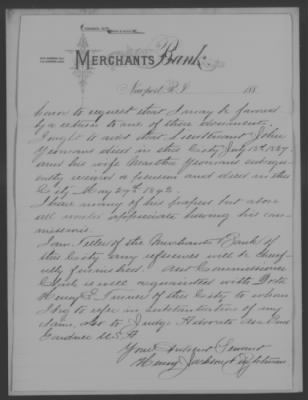 MERCHANTS Bank.
Newport R.I. 188
to request that I may be favored
by a return to me of these documents.
I ought to add that Lieutenant John
Yeomans died in this City July 13th 1827.
and his wife Martha Yeomans subseq-
uently received a pension and died in this
City May 29th 1842.
I have many of his papers but above
all would appreciate having his com-
missions.
I am Teller of the Merchants Bank of
this City any references will be cheer-
fully furnished. Commissioner
Clark is well acquainted with Doctr
Henry E. Turner of this City to whom
I beg to refer in substantiation of my
claim, also to Judge Advocate
Gardner U.S.A
Your Obedient Servant
Henry Jackson